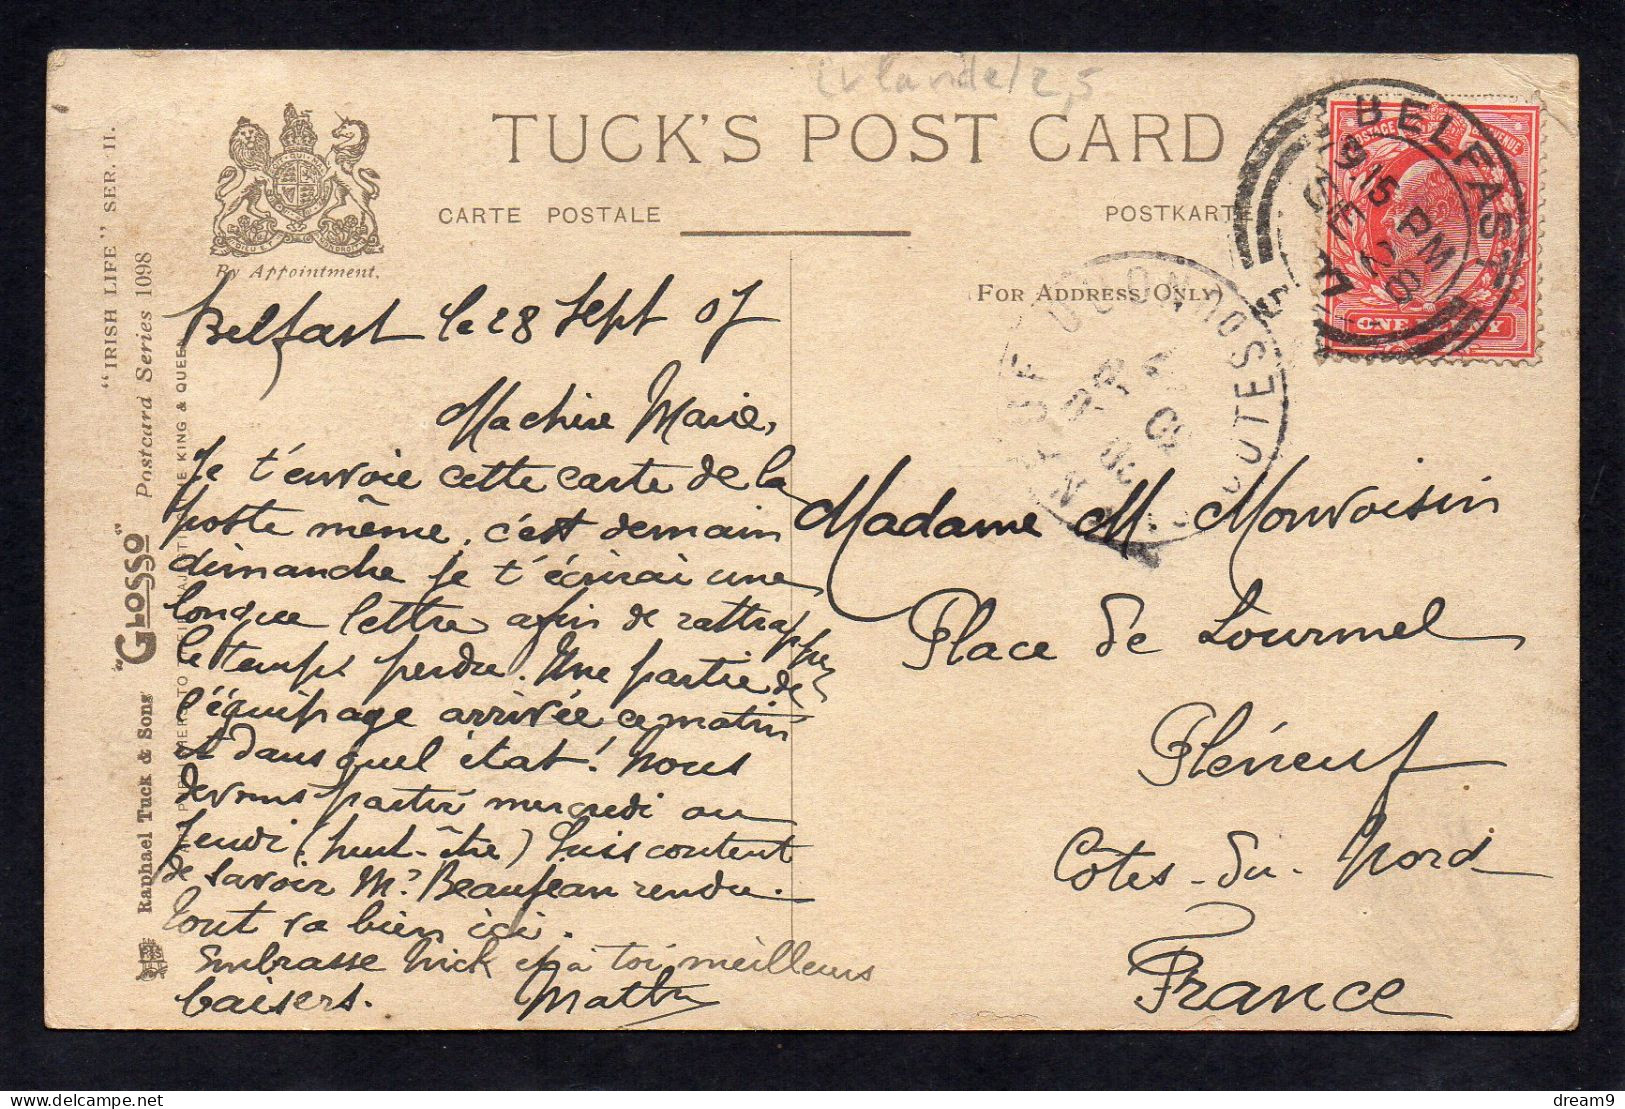 Irlande/2,5
TUCK'S POST CARD
CARTE POSTALE
POSTKARTE
By Appointment.
FOR ADDRESS ONLY
BELFAST
9.15 PM
SE
POSTAGE REVENUE
ONE PENNY
"IRISH LIFE" SER. II.
Postcard Series 1098
"GLOSSO"
Raphael Tuck & Sons
THE KING & QUEEN
Belfast le 28 Sept 07
Ma chère Marie,
Je t'envoie cette carte de la
poste même, c'est demain
dimanche je t'écrirai une
longue lettre afin de rattrapper
le temps perdu. Une partie de
l'équipage arrivée ce matin
et dans quel état! Nous
devons partir mercredi ou
jeudi (peut-être) suis content
de savoir Mr Beaujean rendu.
Tout va bien ici.
Embrasse Nick et à toi meilleurs
baisers.
Madame M. Monvoisin
Place de Lourmel
Pléneuf
Côtes-du-Nord
France
delcampe.net
dream9